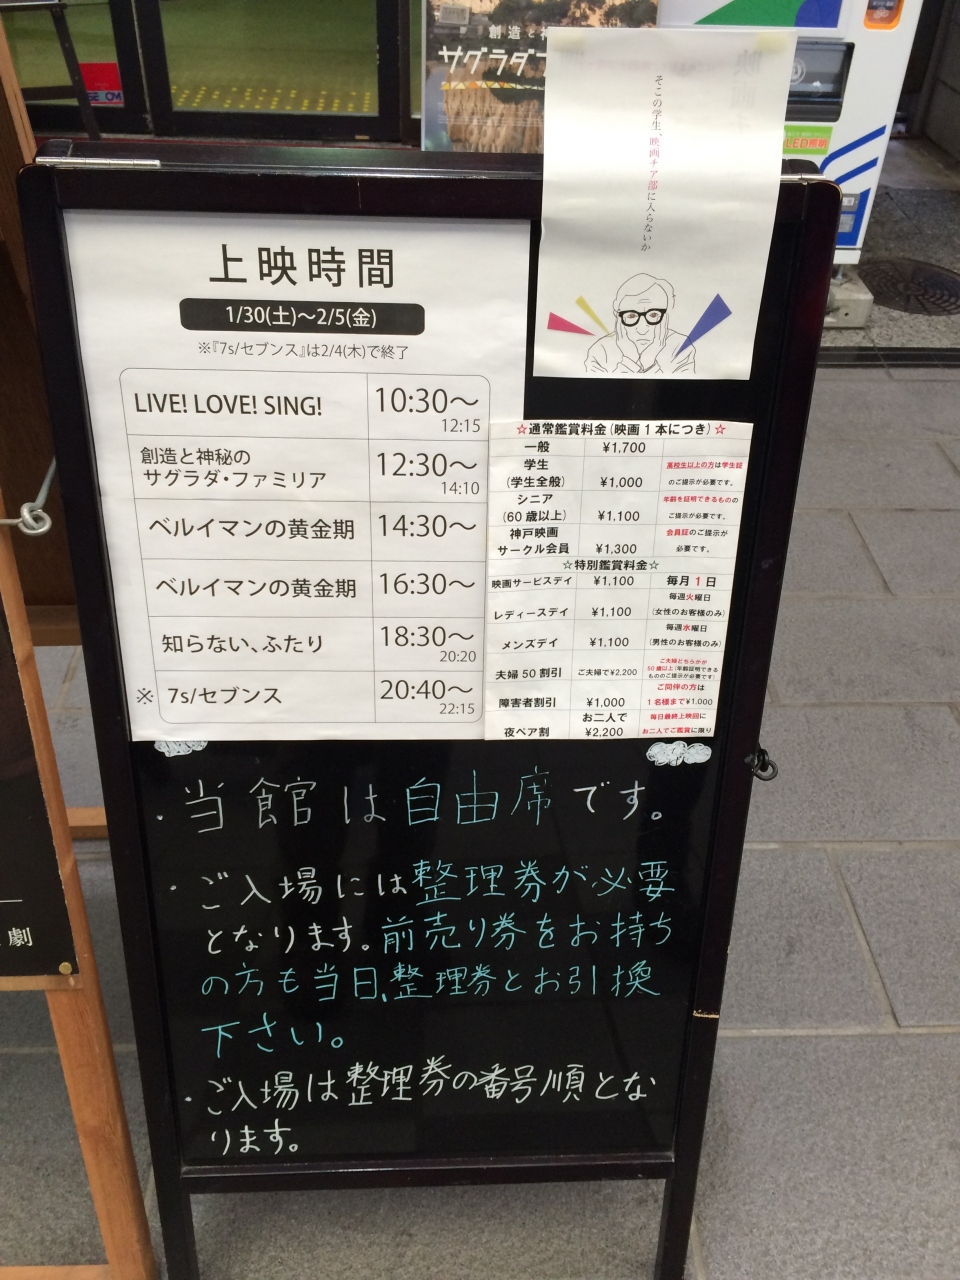 創造と神
サグラダフ
そこの学生、映画チア部に入らないか
LED照明
上映時間
1/30(土)～2/5(金)
※『7s/セブンス』は2/4(木)で終了
LIVE! LOVE! SING! 10:30～
12:15
創造と神秘の
サグラダ・ファミリア 12:30～
14:10
ベルイマンの黄金期 14:30～
ベルイマンの黄金期 16:30～
知らない、ふたり 18:30～
20:20
※ 7s/セブンス 20:40～
22:15
☆通常鑑賞料金(映画1本につき)☆
一般 ¥1,700
学生
(学生全般) ¥1,000 高校生以上の方は学生証
のご提示が必要です。
シニア
(60歳以上) ¥1,100 年齢を証明できるものの
ご提示が必要です。
神戸映画
サークル会員 ¥1,300 会員証のご提示が
必要です。
☆特別鑑賞料金☆
映画サービスデイ ¥1,100 毎月1日
レディースデイ ¥1,100 毎週火曜日
(女性のお客様のみ)
メンズデイ ¥1,100 毎週水曜日
(男性のお客様のみ)
夫婦50割引 ご夫婦で¥2,200 ご夫婦どちらかが
50歳以上(年齢証明できる
もののご提示が必要です)
障害者割引 ¥1,000 ご同伴の方は
1名様まで¥1,000
夜ペア割 お二人で
¥2,200 毎日最終上映回に
お二人でご鑑賞に限り
・当館は自由席です。
・ご入場には整理券が必要
となります。前売り券をお持ち
の方も当日、整理券とお引換
下さい。
・ご入場は整理券の番号順とな
ります。
劇